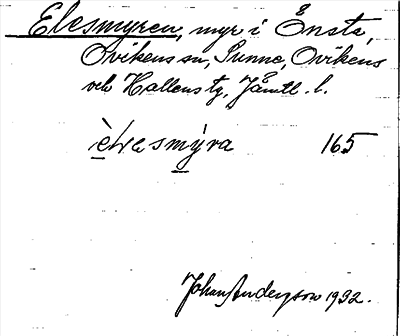 Elesmyren, myr i Ensta,
Ovikens sn, Sunne, Ovikens
och Hallens tg, Jämtl. l.
165
Johan Anderson 1932.